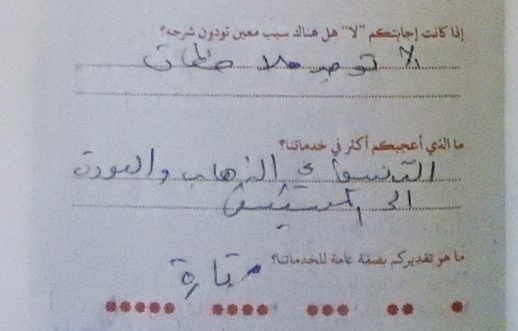 إذا كانت إجابتكم "لا" هل هناك سبب معين تودون شرحه؟
لا توجد ملاحظات
ما الذي أعجبكم أكثر في خدماتنا؟
التنسيق في الذهاب والعودة
الى المستشفى
ما هو تقديركم بصفة عامة لخدماتنا؟
ممتازة